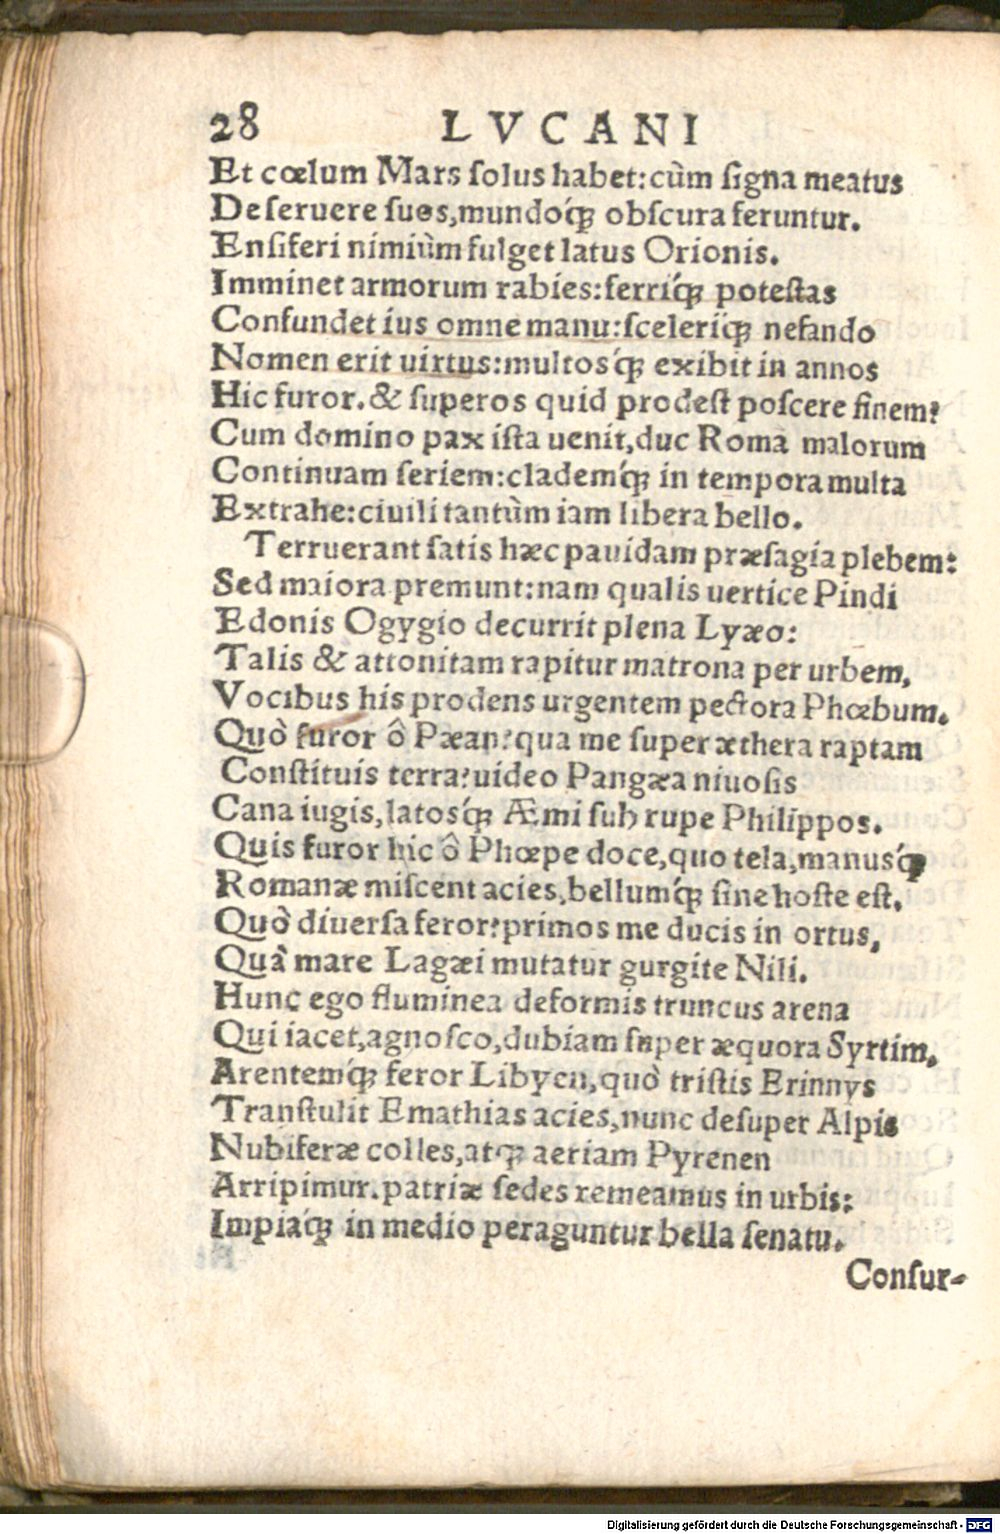 28 LVCANI
Et cœlum Mars ſolus habet:cùm ſigna meatus
Deſeruere ſuos,mundoq́; obſcura feruntur.
Enſiferi nimiùm fulget latus Orionis.
Imminet armorum rabies:ferriq́; poteſtas
Confundet ius omne manu:ſceleriq́; nefando
Nomen erit uirtus:multosq́; exibit in annos
Hic furor.& ſuperos quid prodeſt poſcere finem?
Cum domino pax iſta uenit,duc Roma malorum
Continuam ſeriem:clademq́; in tempora multa
Extrahe:ciuili tantùm iam libera bello.
Terruerant ſatis hæc pauidam præſagia plebem:
Sed maiora premunt:nam qualis uertice Pindi
Edonis Ogygio decurrit plena Lyæo:
Talis & attonitam rapitur matrona per urbem,
Vocibus his prodens urgentem pectora Phœbum.
Quò furor ô Pæan?qua me ſuper æthera raptam
Conſtituis terra?uideo Pangæa niuoſis
Cana iugis,latosq́; Æmi ſub rupe Philippos.
Quis furor hic ô Phœpe doce,quo tela,manusq́;
Romanæ miſcent acies,bellumq́; ſine hoſte eſt.
Quò diuerſa feror?primos me ducis in ortus,
Quà mare Lagæi mutatur gurgite Nili.
Hunc ego fluminea deformis truncus arena
Qui iacet,agnoſco,dubiam ſuper æquora Syrtim,
Arentemq́; feror Libycn,quò triſtis Erinnys
Tranſtulit Emathias acies,nunc deſuper Alpis
Nubiferæ colles,atq; aeriam Pyrenen
Arripimur.patriæ ſedes remeamus in urbis:
Impiaq́; in medio peraguntur bella ſenatu.
Conſur-
Digitalisierung gefördert durch die Deutsche Forschungsgemeinschaft - DFG